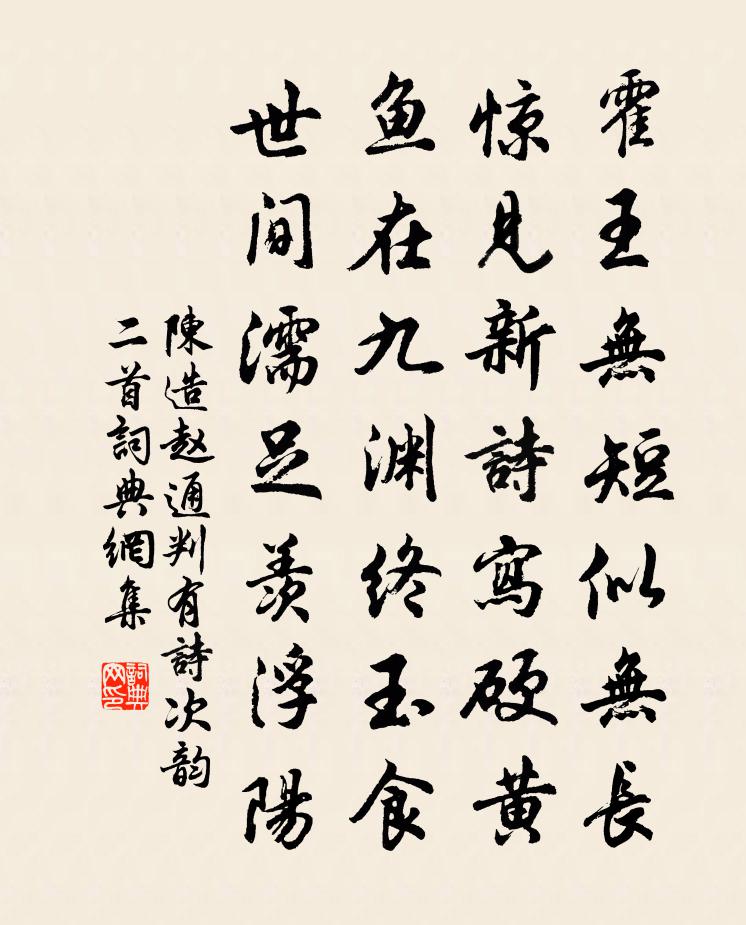 霍王無短似無長
惊見新詩寫硬黃
鱼在九渊終玉食
世间濡足羨浮陽
陳造赵通判有詩次韵
二首詞典網集
詞典
网印